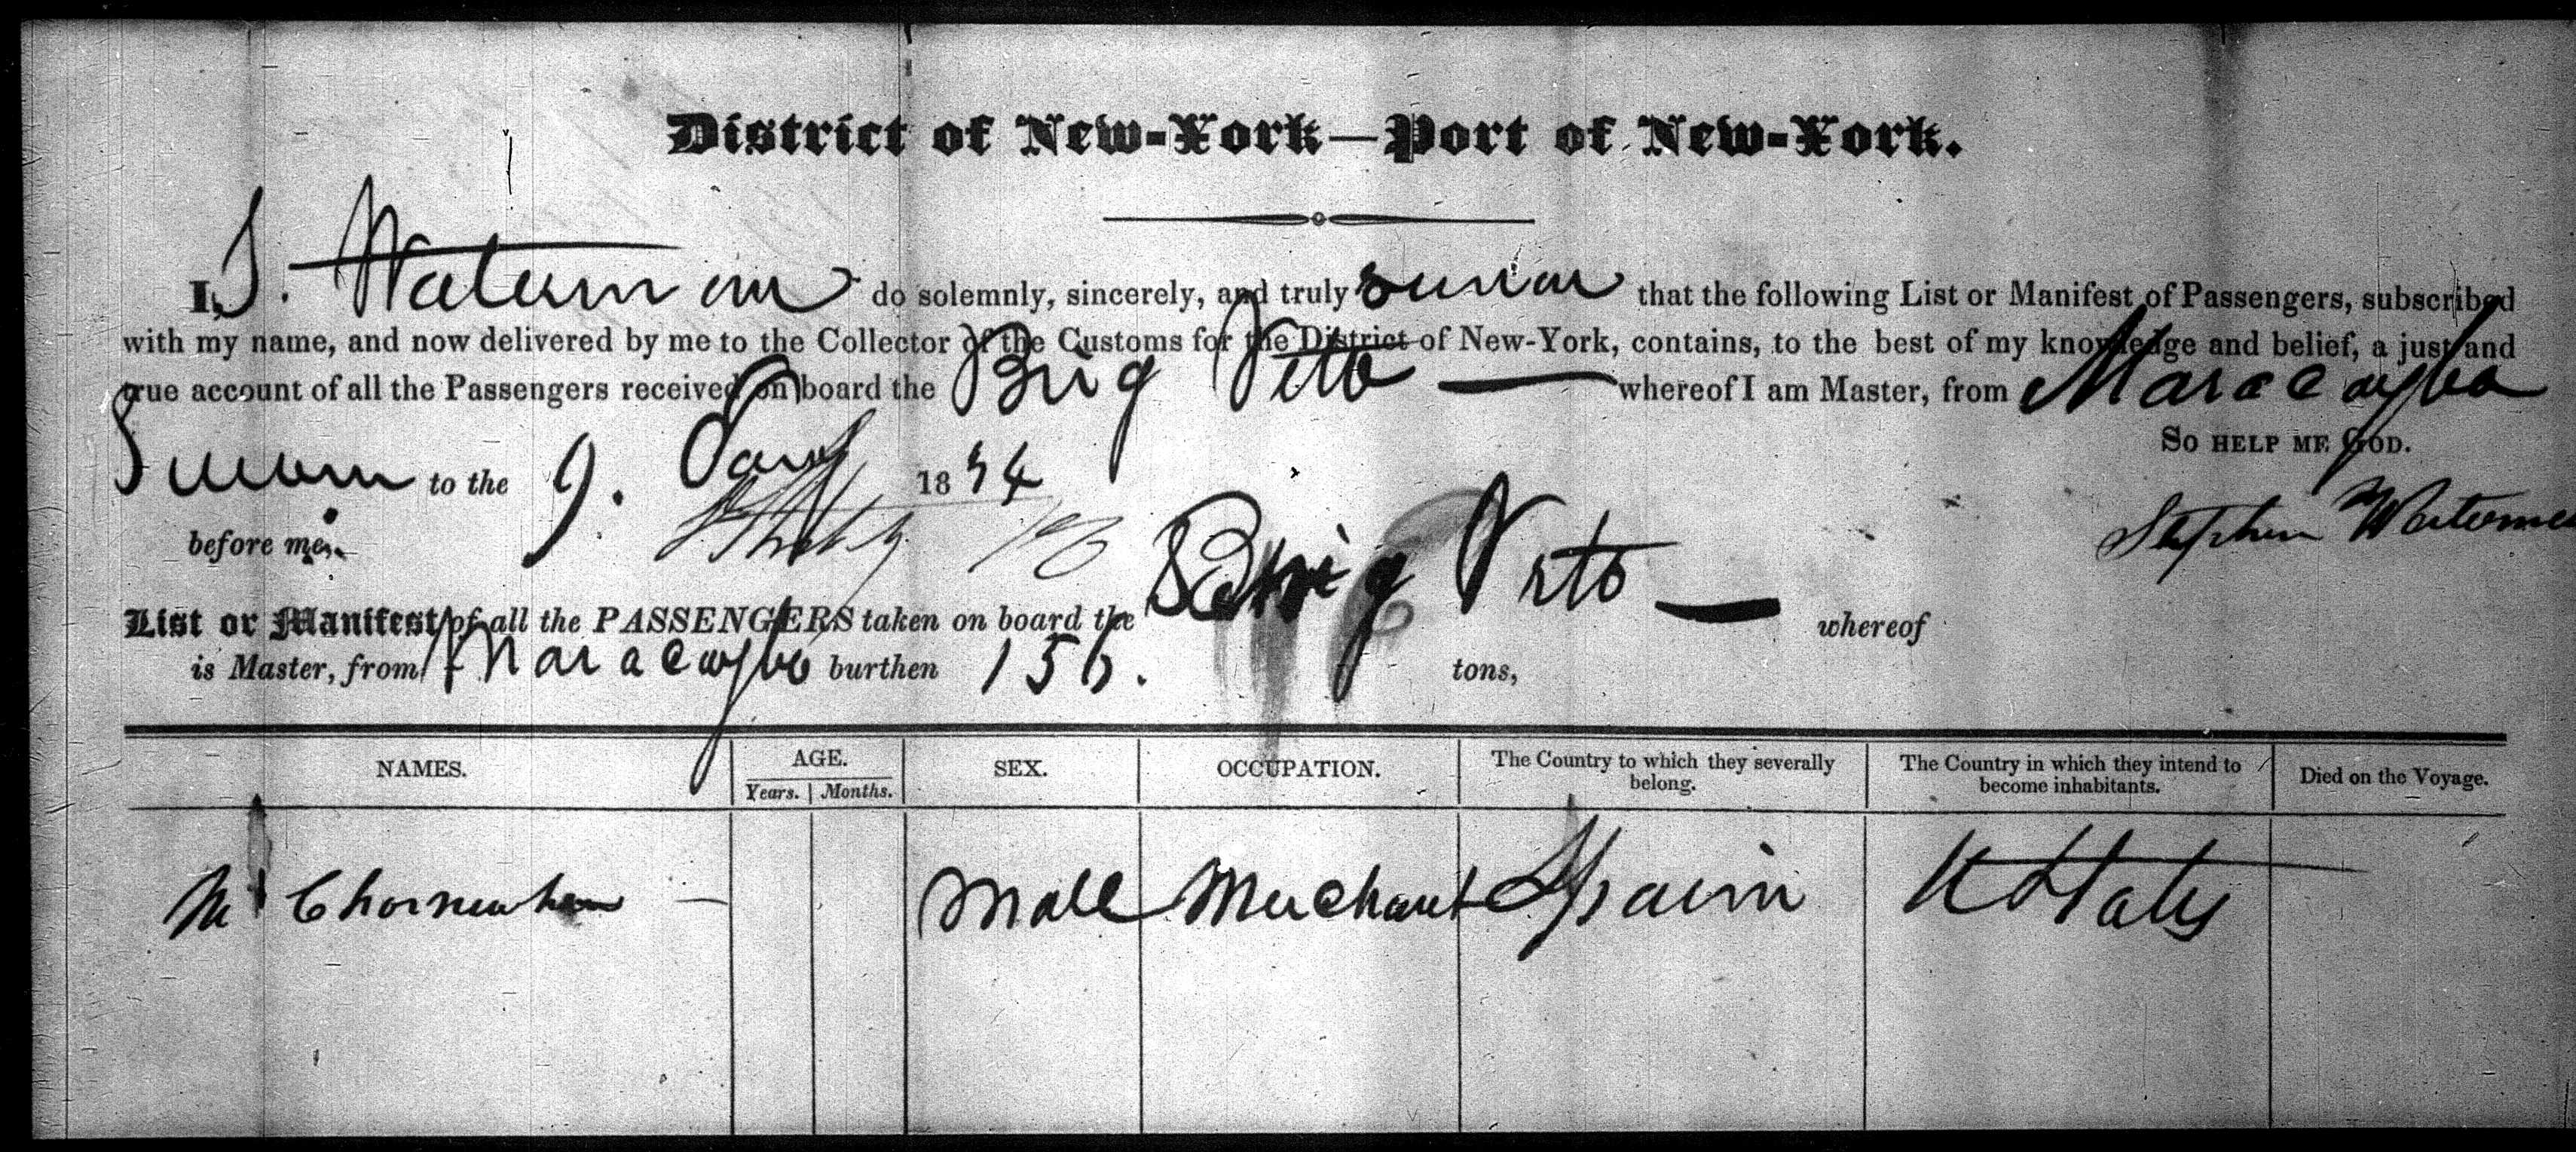 District of New-York—Port of New-York.
I, S. Waterman do solemnly, sincerely, and truly swear that the following List or Manifest of Passengers, subscribed
with my name, and now delivered by me to the Collector of the Customs for the District of New-York, contains, to the best of my knowledge and belief, a just and
true account of all the Passengers received on board the Brig Veto whereof I am Master, from Maracaybo
So help me God.
Sworn to the 9. Jany 1834
Stephen Waterman
before me,
List or Manifest of all the PASSENGERS taken on board the Brig Veto — whereof
is Master, from Maracaybo burthen 156. tons,
NAMES. AGE. Years. Months. SEX. OCCUPATION. The Country to which they severally belong. The Country in which they intend to become inhabitants. Died on the Voyage.
M Male Merchant Spain U States